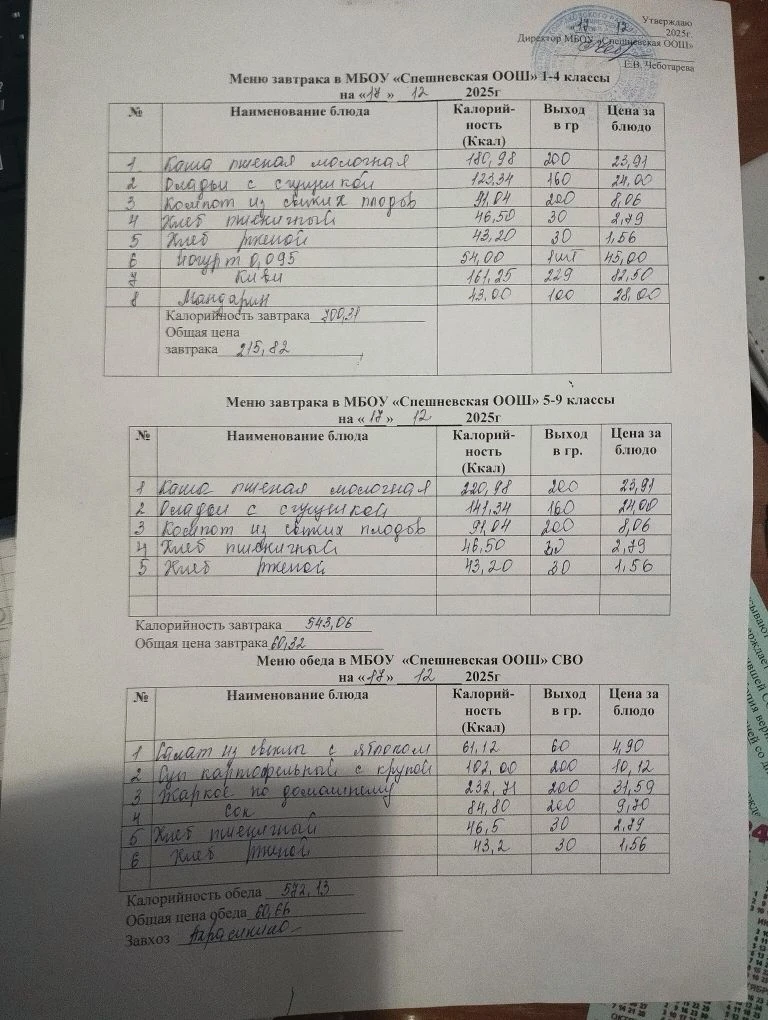 Утверждаю
«17» 12 2025г.
Директор МБОУ «Спешневская ООШ»
Е.В. Чеботарева
Меню завтрака в МБОУ «Спешневская ООШ» 1-4 классы
на «17» 12 2025г
№ Наименование блюда Калорий-ность (Ккал) Выход в гр Цена за блюдо
1 Каша пшеная молочная 180,98 200 23,91
2 Оладьи с сгущенкой 123,34 160 24,00
3 Компот из свежих плодов 91,04 200 8,06
4 Хлеб пшеничный 46,50 30 2,79
5 Хлеб рженой 43,20 30 1,56
6 Йогурт 0,095 54,00 1шт 45,00
7 Киви 161,25 229 82,50
8 Мандарин 43,00 100 28,00
Калорийность завтрака 700,31
Общая цена
завтрака 215,82
Меню завтрака в МБОУ «Спешневская ООШ» 5-9 классы
на «17» 12 2025г
№ Наименование блюда Калорий-ность (Ккал) Выход в гр. Цена за блюдо
1 Каша пшеная молочная 220,98 200 23,91
2 Оладьи с сгущенкой 141,34 160 24,00
3 Компот из свежих плодов 91,04 200 8,06
4 Хлеб пшеничный 46,50 30 2,79
5 Хлеб рженой 43,20 30 1,56
Калорийность завтрака 543,06
Общая цена завтрака 60,32
Меню обеда в МБОУ «Спешневская ООШ» СВО
на «17» 12 2025г
№ Наименование блюда Калорий-ность (Ккал) Выход в гр. Цена за блюдо
1 Салат из свеклы с яблоком 61,12 60 4,90
2 Суп картофельный с крупой 102,00 200 10,12
3 Жаркое по домашнему 232,71 200 31,59
4 Сок 84,80 200 9,70
5 Хлеб пшеничный 46,5 30 2,79
6 Хлеб рженой 43,2 30 1,56
Калорийность обеда 572,13
Общая цена обеда 60,66
Завхоз